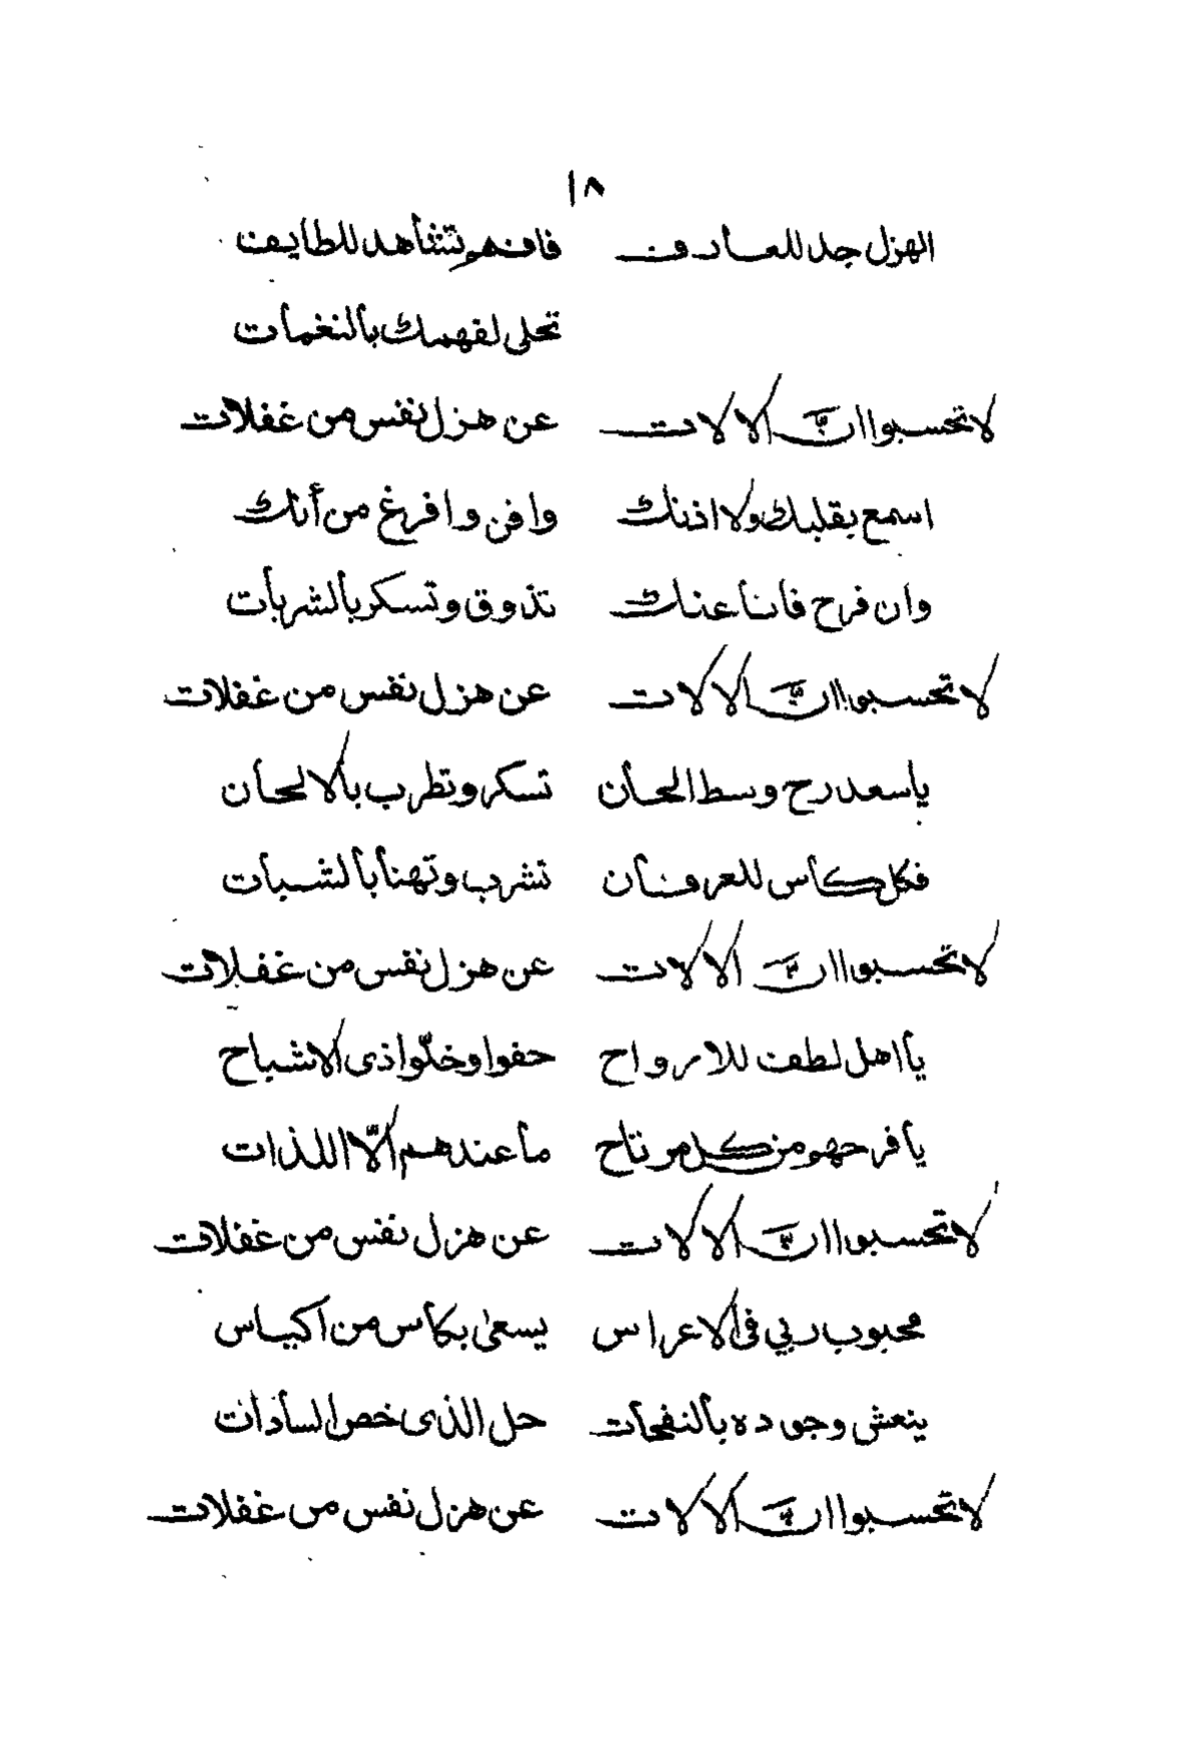 ١٨
الهزل جد للعارف فافهم تشاهد للطايف
تحلى لفهمك بالنغمات
لا تحسبوا ان الالات عن هزل نفس من غفلات
اسمع بقلبك ولا اذنك وافن وافرغ من أنك
وان فرح فانا عنك تذوق وتسكر بالشربات
لا تحسبوا ان الالات عن هزل نفس من غفلات
ياسعد رح وسط الحان تسكر وتطرب بالالحان
فكل كأس للعرفان تشرب وتهنأ بالشبات
لا تحسبوا ان الالات عن هزل نفس من غفلات
يا اهل لطف للارواح حفوا وخلّوا ذى الاشباح
يا فرحهو من كل مرتاح ما عندهم الّا اللذات
لا تحسبوا ان الالات عن هزل نفس من غفلات
محبوب ربي فى الاعراس يسعى بكأس من اكياس
ينعش وجوده بالنفحات حل الذى خص السادات
لا تحسبوا ان الالات عن هزل نفس من غفلات